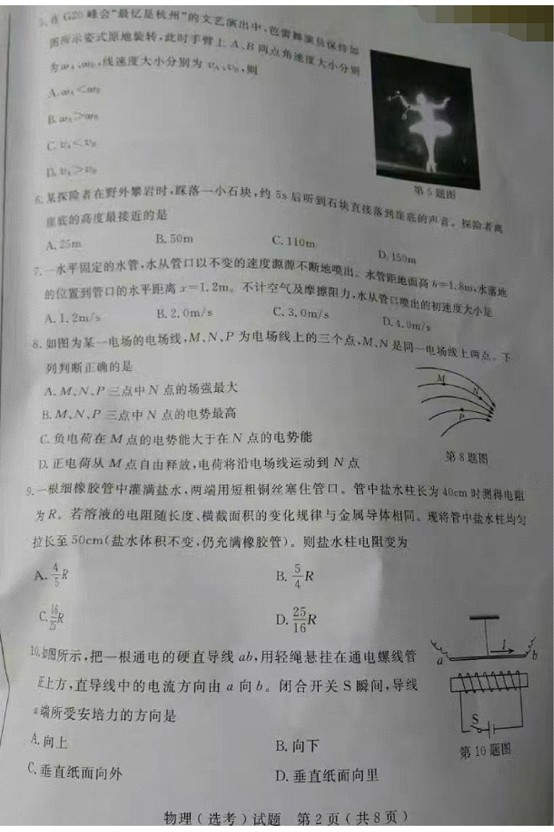 5.在G20峰会“最忆是杭州”的文艺演出中,芭蕾舞演员保持如
图所示姿式原地旋转,此时手臂上A、B两点角速度大小分别
为ωA、ωB,线速度大小分别为vA、vB,则
A.ωA<ωB
B.ωA>ωB
C.vA<vB
D.vA>vB
第5题图
6.某探险者在野外攀岩时,踩落一小石块,约5s后听到石块直接落到崖底的声音。探险者离
崖底的高度最接近的是
A.25m B.50m C.110m D.150m
7.一水平固定的水管,水从管口以不变的速度源源不断地喷出。水管距地面高h=1.8m,水落地
的位置到管口的水平距离x=1.2m。不计空气及摩擦阻力,水从管口喷出的初速度大小是
A.1.2m/s B.2.0m/s C.3.0m/s D.4.0m/s
8.如图为某一电场的电场线,M、N、P为电场线上的三个点,M、N是同一电场线上两点。下
列判断正确的是
A.M、N、P三点中N点的场强最大
M
N
B.M、N、P三点中N点的电势最高
P
C.负电荷在M点的电势能大于在N点的电势能
D.正电荷从M点自由释放,电荷将沿电场线运动到N点
第8题图
9.一根细橡胶管中灌满盐水,两端用短粗铜丝塞住管口。管中盐水柱长为40cm时测得电阻
为R。若溶液的电阻随长度、横截面积的变化规律与金属导体相同。现将管中盐水柱均匀
拉长至50cm(盐水体积不变,仍充满橡胶管)。则盐水柱电阻变为
A.4/5R B.5/4R
C.16/25R D.25/16R
10.如图所示,把一根通电的硬直导线ab,用轻绳悬挂在通电螺线管
a I b
正上方,直导线中的电流方向由a向b。闭合开关S瞬间,导线
a端所受安培力的方向是
S
A.向上 B.向下
第10题图
C.垂直纸面向外 D.垂直纸面向里
物理(选考)试题 第2页(共8页)